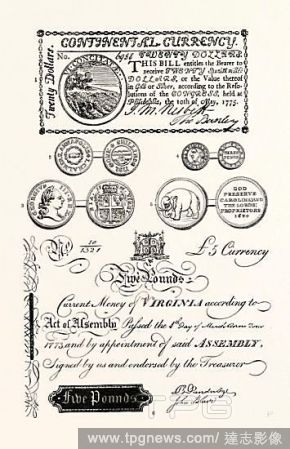 CONTINENTAL CURRENCY.
No. 6951 TWENTY DOLLARS.
THIS BILL entitles the Bearer to
receive TWENTY Spanish milled
DOLLARS, or the Value thereof
in Gold or Silver, according to the Reso-
lutions of the CONGRESS, held at
Philadelphia, the 10th of May, 1775.
Twenty Dollars.
1
4
3
5
GOD
PRESERVE
CAROLINA AND
THE LORDS
PROPRIETORS
No. 10
1321
£5 Currency
Five Pounds
Current Money of VIRGINIA according to
Act of Assembly Passed the Day of March
1773 and by appointment of said ASSEMBLY,
Signed by us and endorsed by the Treasurer
Five Pounds
John Blair
6
TPG
www.tpgnews.com/達志影像